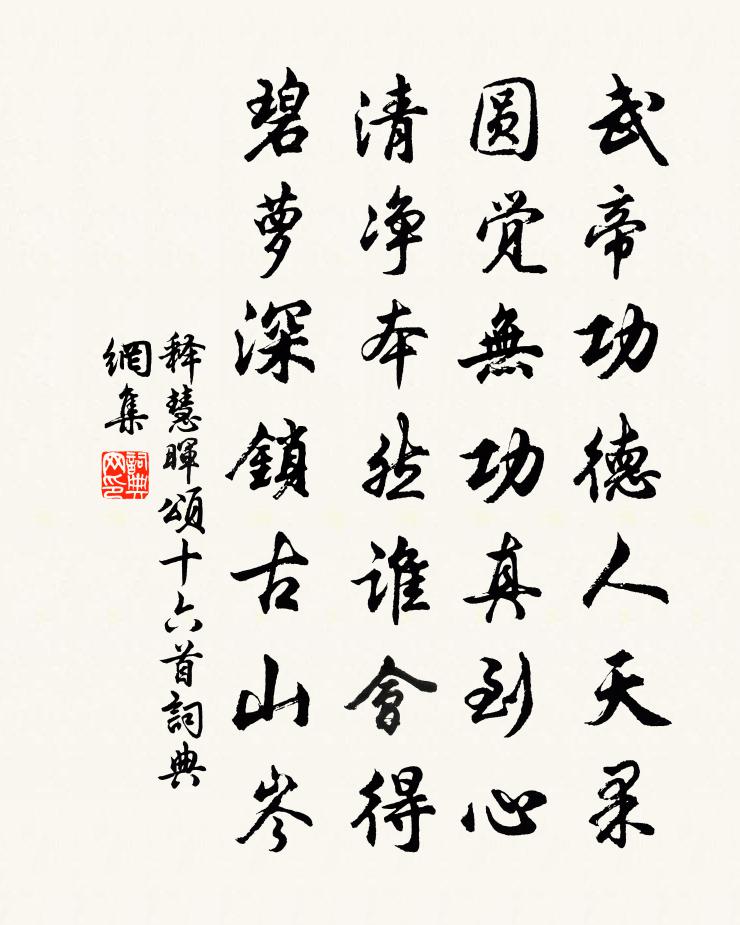 武帝功德人天果
圆觉無功真到心
清净本然谁會得
碧萝深鎖古山岑
释慧暉頌十六首詞典
網集
詞典
网